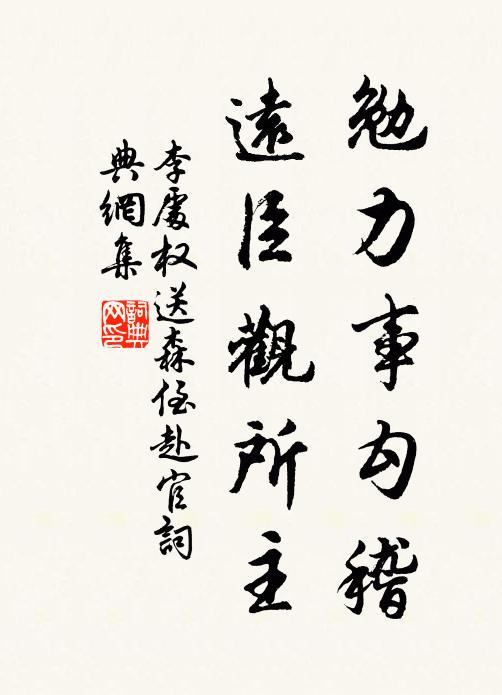 勉力事勾稽
遠臣觀所主
李處权送森侄赴官詞
典網集
詞典网印